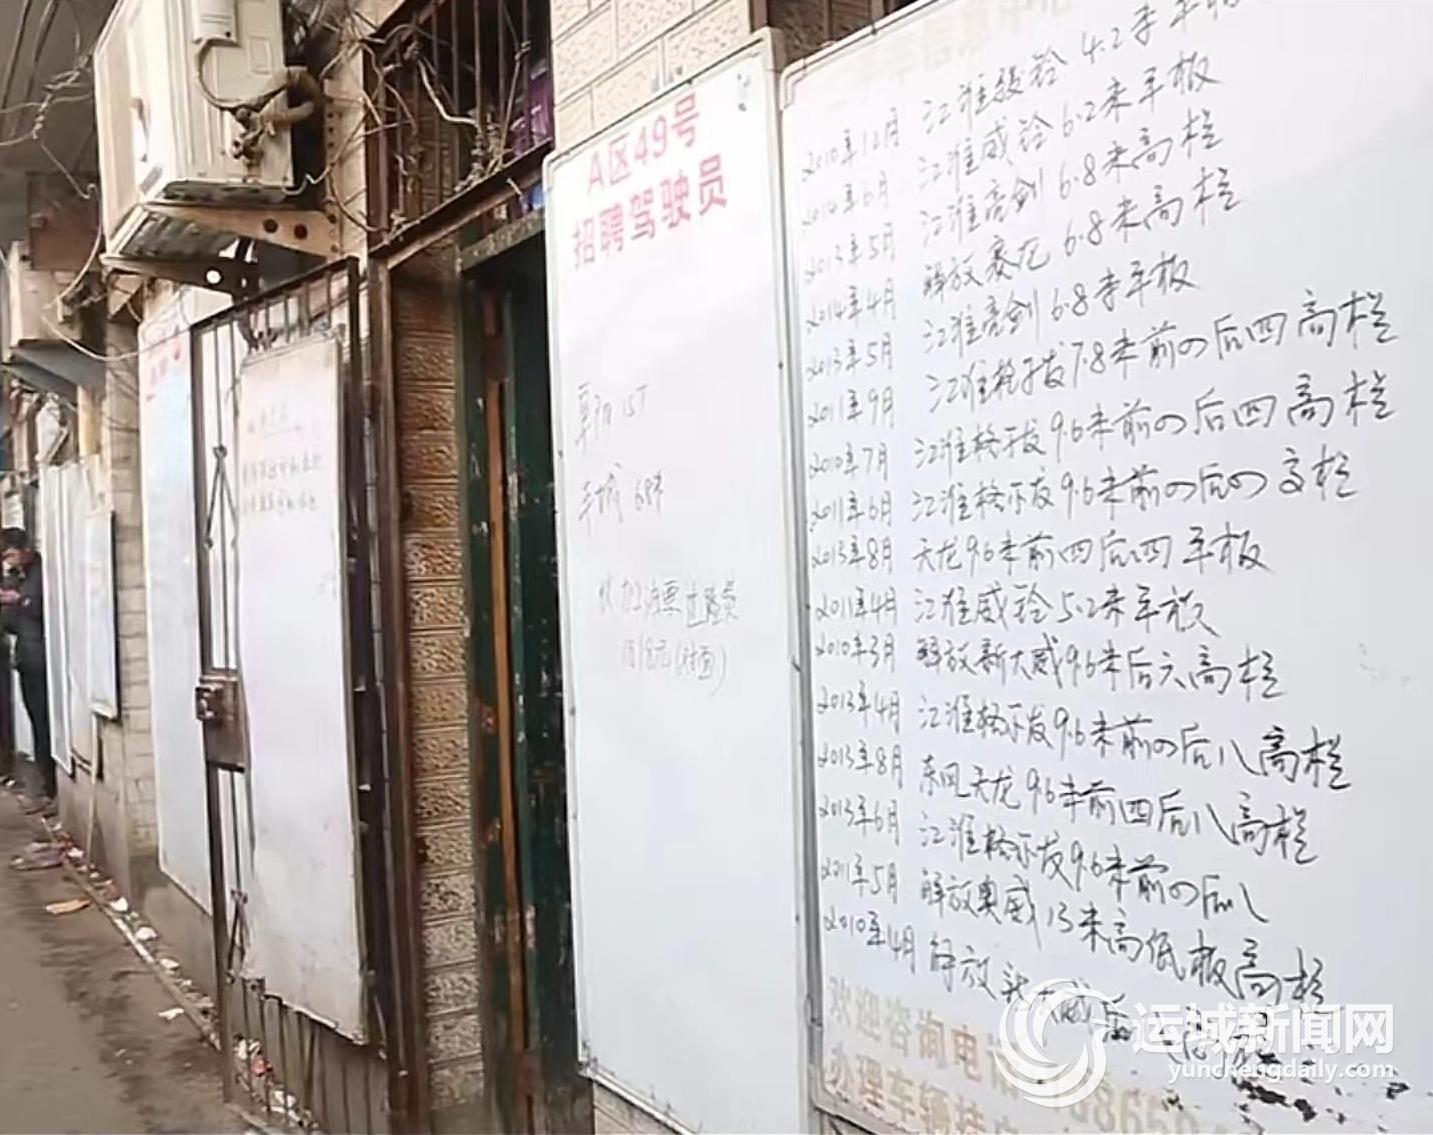 A区49号
招聘驾驶员
15T
加油票过路费
元(对面)
二手车信息中心
2010年12月 江淮骏铃 4.2米平板
2014年6月 江淮威铃 6.2米平板
2013年5月 江淮亮剑 6.8米高栏
2014年4月 解放赛龙 6.8米高栏
2013年5月 江淮亮剑 6.8米平板
2011年9月 江淮格尔发 7.8米前四后四高栏
2010年7月 江淮格尔发 9.6米前四后四高栏
2011年6月 江淮格尔发 9.6米前四后四高栏
2013年8月 天龙 9.6米前四后四平板
2011年4月 江淮威铃 5.2米平板
2010年3月 解放新大威 9.6米后六高栏
2013年4月 江淮格尔发 9.6米前四后八高栏
2013年8月 东风天龙 9.6米前四后八高栏
2013年6月 江淮格尔发 9.6米前四后八
2011年5月 解放奥威 13米高低板高栏
2010年4月 解放新大威后
欢迎咨询电话
办理车辆挂
运城新闻网
yunchengdaily.com